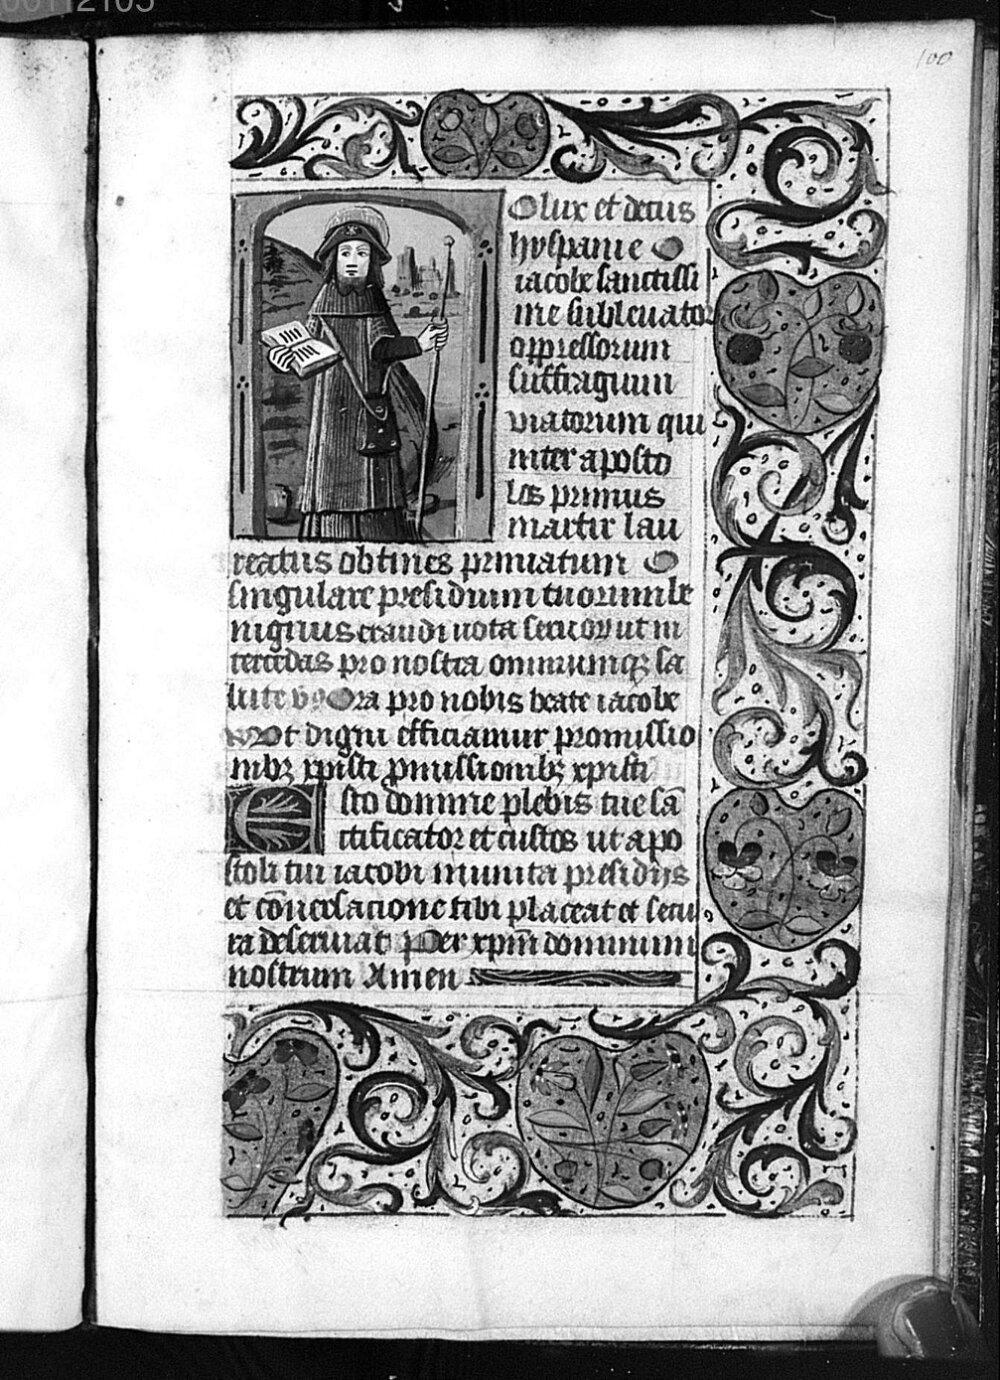 100
O lux et decus
hyspanie O
iacobe sanctissi
me subleuator
oppressorum
suffragium
viatorum qui
inter aposto
los primus
martir lau
reatus obtines primatum O
singulare presidium tuorum be
nignus exaudi uota seruorum ut in
tercedas pro nostra omniumqz sa
lute v9 Ora pro nobis beate iacobe
Vt digni efficiamur promissio
nibz xpisti promissionibz xpisti
Esto domine plebis tue sā
ctificator et custos ut apo
stoli tui iacobi munita presidiis
et cōuersacione tibi placeat et secu
ra deseruiat Per xpm̄ dominum
nostrum Amen